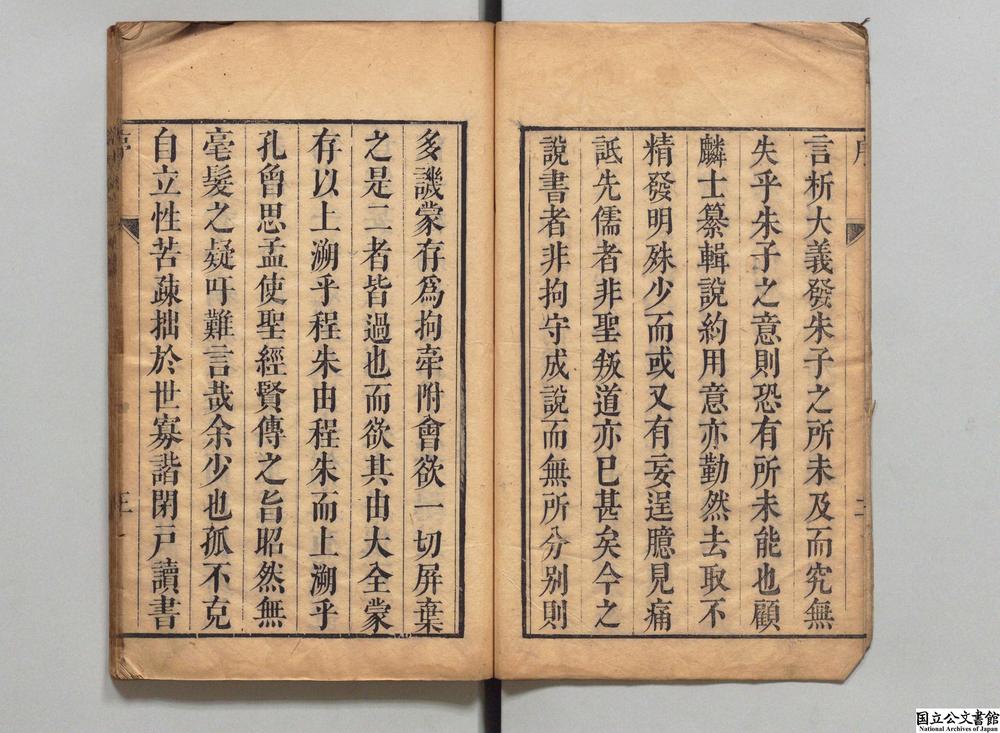 言析大義發朱子之所未及而究無
失乎朱子之意則恐有所未能也顧
麟士纂輯說約用意亦勤然去取不
精發明殊少而或又有妄逞臆見痛
詆先儒者非聖叛道亦已甚矣今之
說書者非拘守成說而無所分別則
多譏蒙存為拘牽附會欲一切屏棄
之是二者皆過也而欲其由大全蒙
存以上溯乎程朱由程朱而上溯乎
孔曾思孟使聖經賢傳之旨昭然無
毫髮之疑吁難言哉余少也孤不克
自立性苦疎拙於世寡諧閉戸讀書
国立公文書館
National Archives of Japan